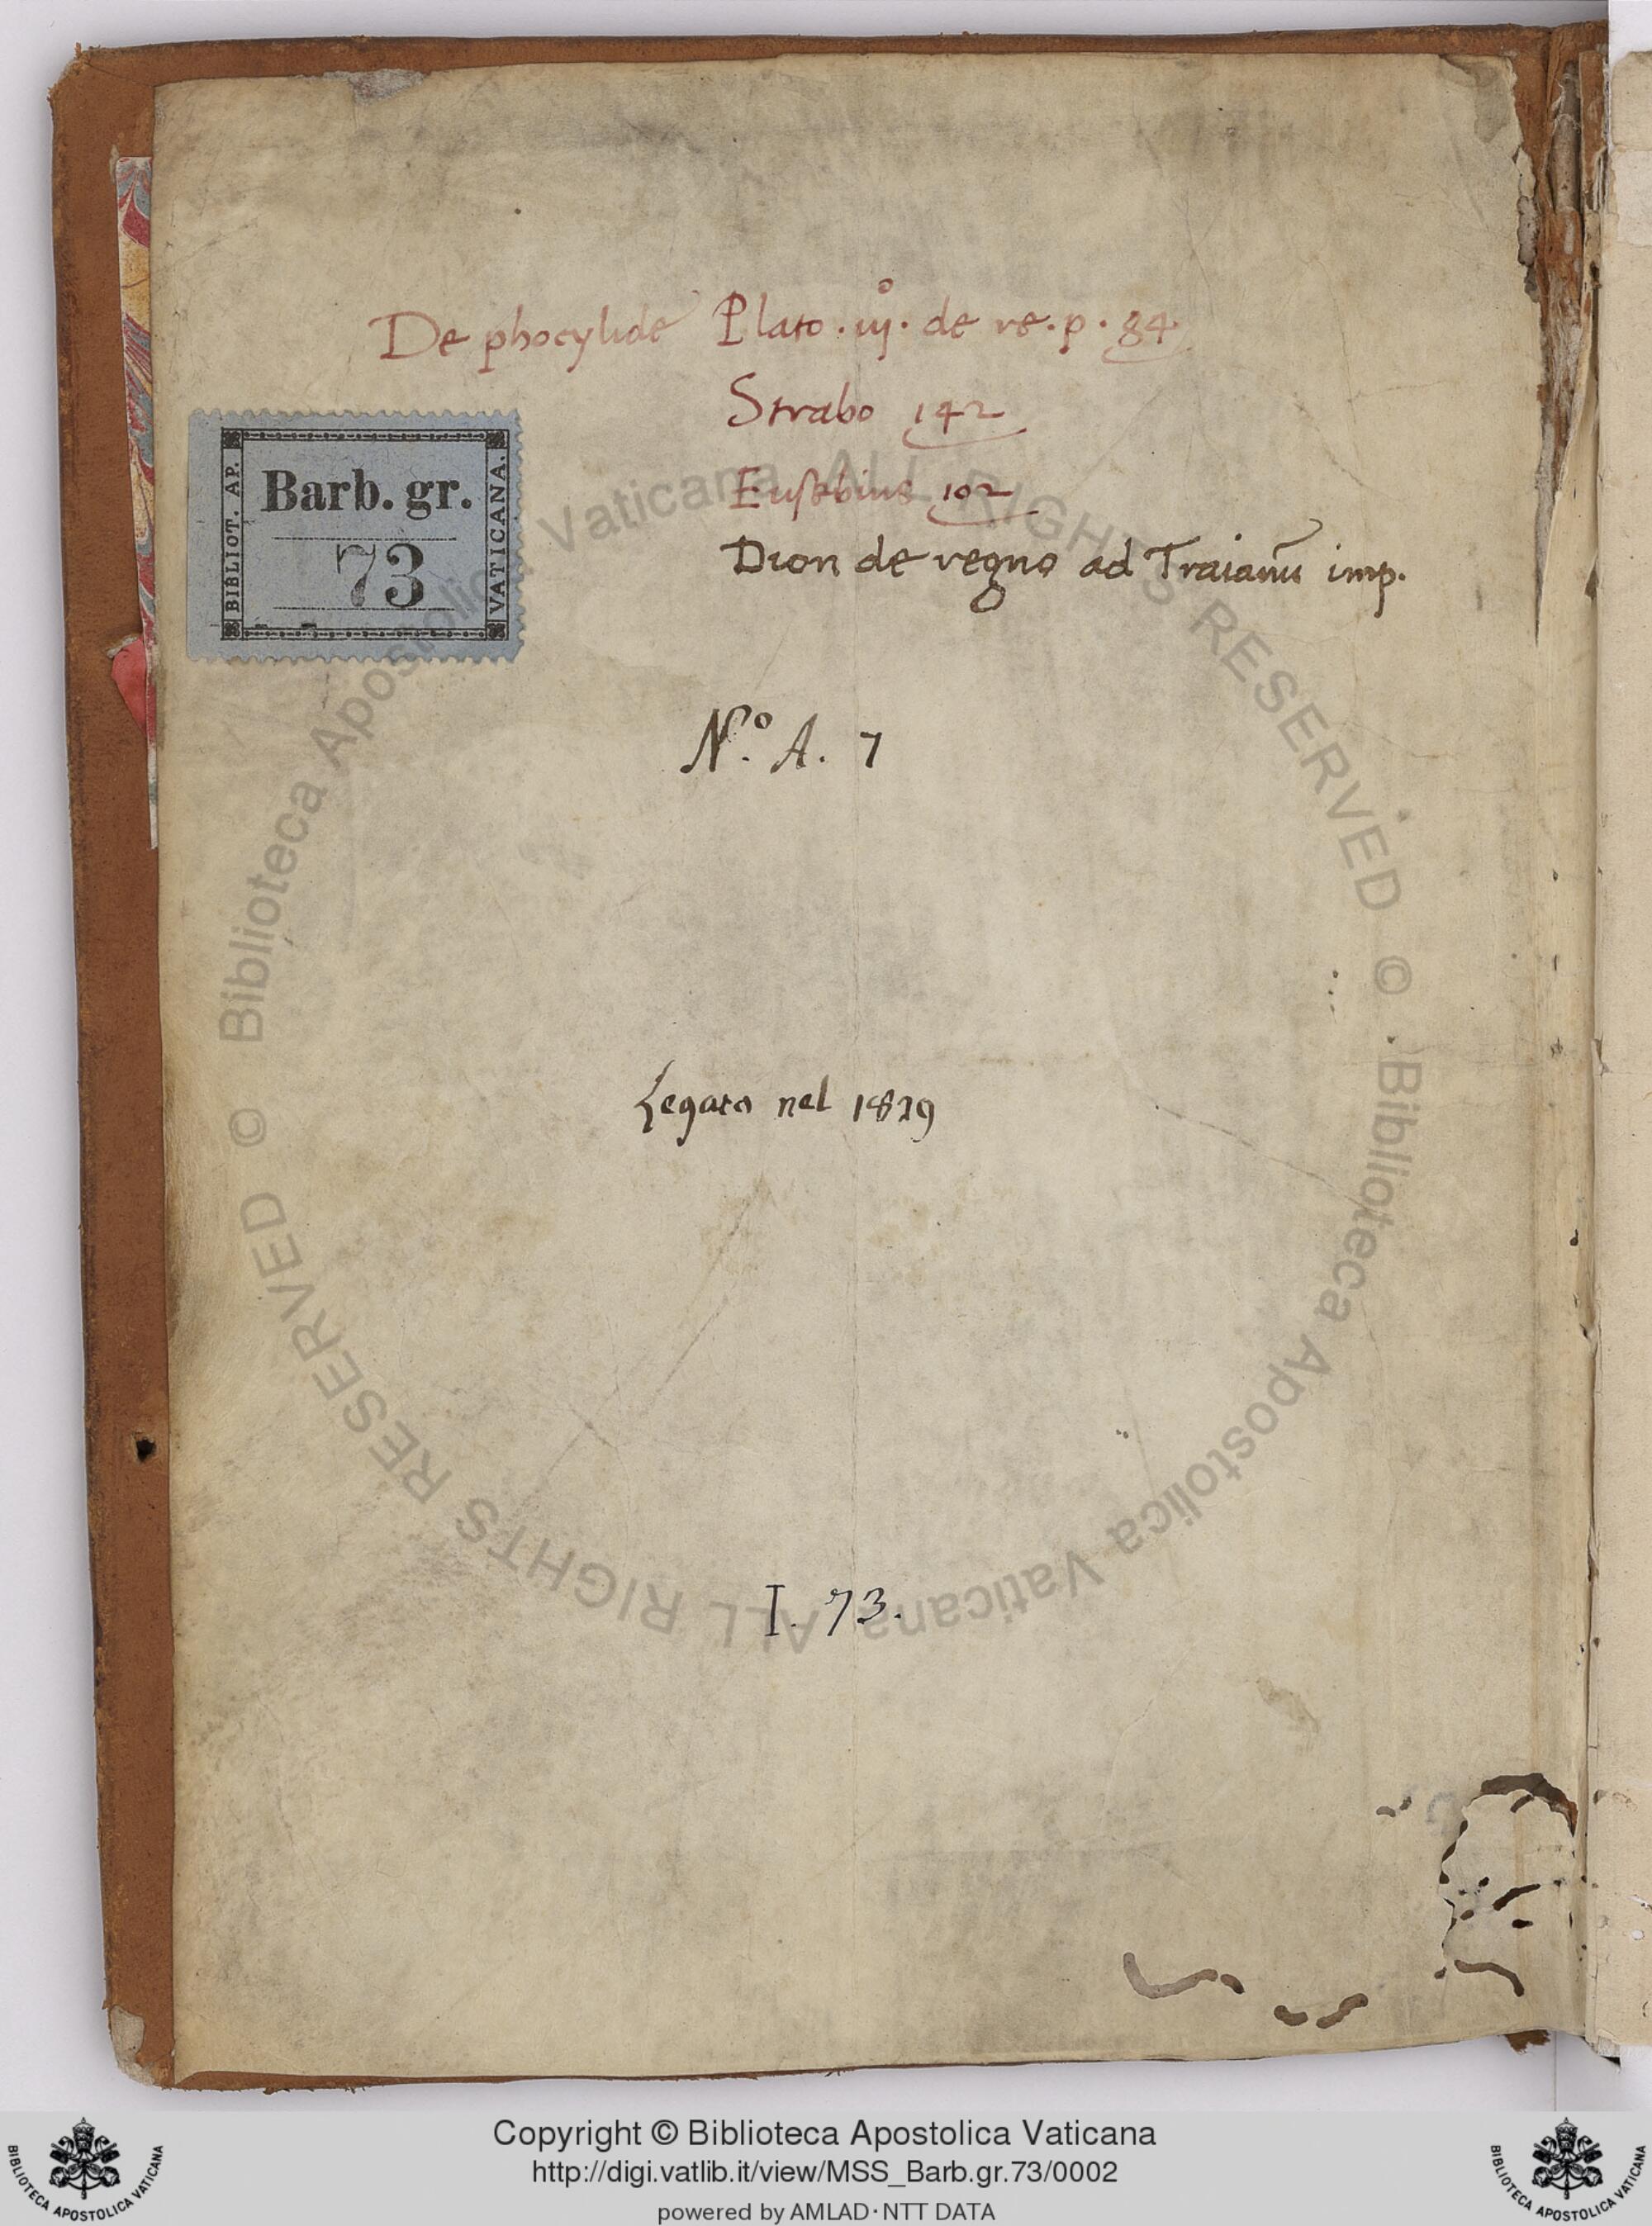 De phocylide Plato . iij° . de re . p . 84
Strabo 142
Eusebius 102
Dion de regno ad Traianū imp.
BIBLIOT. AP.
Barb. gr.
VATICANA.
73
N.° A. 7
Legato nel 1819
I. 73.
© Biblioteca Apostolica Vaticana ALL RIGHTS RESERVED
© Biblioteca Apostolica Vaticana ALL RIGHTS RESERVED
Copyright © Biblioteca Apostolica Vaticana
http://digi.vatlib.it/view/MSS_Barb.gr.73/0002
powered by AMLAD·NTT DATA
BIBLIOTECA APOSTOLICA VATICANA
BIBLIOTECA APOSTOLICA VATICANA